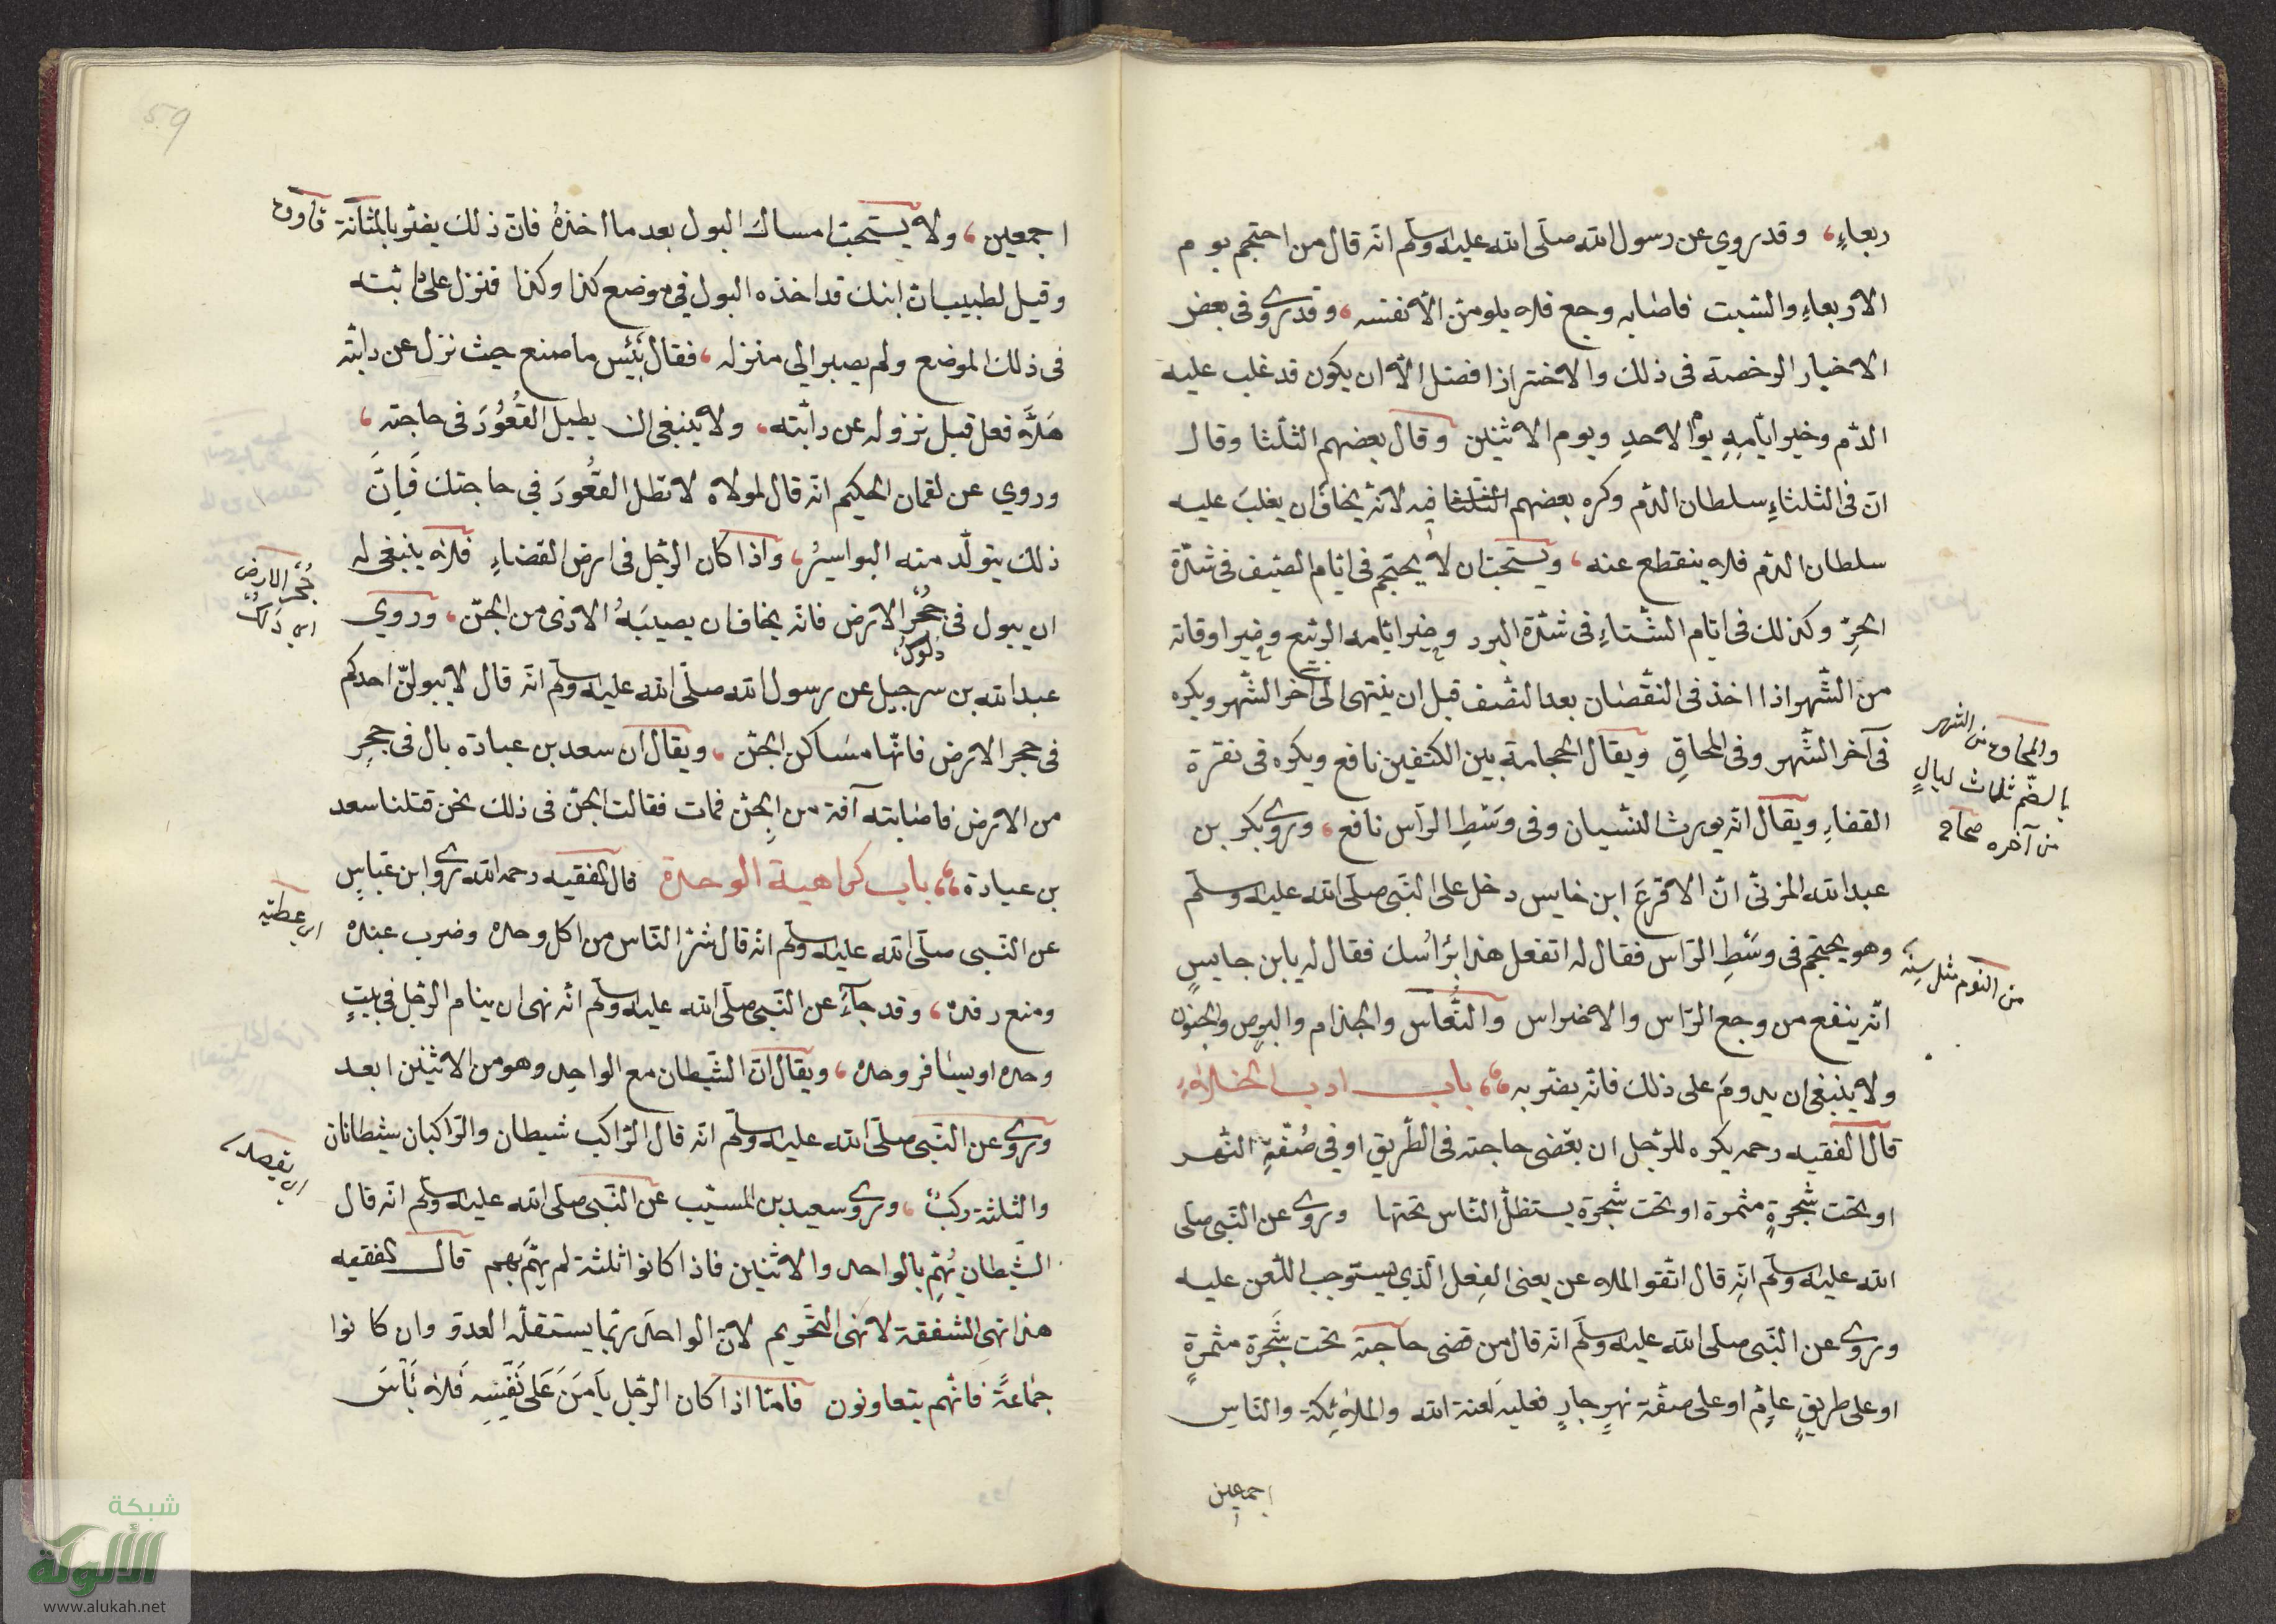 ربعاءِ، وقد روي عن رسول الله صلّى الله عليه وسلّم انّه قال من احتجم يوم
الاربعاءِ والسّبت فاصابه وجع فلا يلومنّ الّا نفسه، وقد روى فى بعض
الاخبار الرخصة فى ذلك والاحتراز افضل الّا ان يكون قد غلب عليه
الدّم وخير ايّامه يوم الاحد ويوم الاثنين وقال بعضهم الثلثا وقال
انّ فى الثلثاءِ سلطان الدّم وكره بعضهم الثلثا فيه لانّه يخاف ان يغلب عليه
سلطان الدّم فلا ينقطع عنه، ويستحبّ ان لا يحتجم فى ايّام الصّيف فى شدّة
الحرّ وكذلك فى ايّام الشّتاءِ فى شدّة البرد وخير ايّامه الرّبيع وخير اوقاته
من الشّهر اذا اخذ فى النقصان بعد النّصف قبل ان ينتهى الى آخر الشّهر ويكره
فى آخر الشّهر وفى المحاقِ ويقال الحجامة بين الكتفين نافع ويكره فى نقرة
القفاءِ ويقال انّه يورث النسيان وفى وسَطِ الرّأس نافع، وروى بكر بن
عبد الله المزنىّ انّ الاقرعَ ابن خابس دخل على النّبى صلّى الله عليه وسلّم
وهو يحتجم فى وسَطِ الرّاس فقال له اتفعل هذا برأسك فقال له يابن حابسٍ
انّه ينفع من وجع الرّاس والاضراس والنُّعاس والجذام والبرص والجنون
ولا ينبغى ان يدومَ على ذلك فانّه يضرّ به، باب ادب الخلاءِ
قال الفقيه رحمه يكره للرّجل ان يقضى حاجته فى الطّريق او فى ضفّةِ النّهر
او تحت شجرةٍ مثمرة او تحت شجرة يستظلّ النّاس تحتها وروى عن النّبى صلى
الله عليه وسلّم انّه قال اتّقوا الملاعن يعنى الفِعل الّذى يستوجب اللّعن عليه
وروى عن النّبى صلّى الله عليه وسلّم انّه قال من قضى حاجته تحت شَجرة مثمرةٍ
او على طريقٍ عامٍّ او على ضفّة نهرٍ جارٍ فعليه لعنة الله والملائكة والنّاس
اجمعين
والمحاق من الشهر
بالضّم ثلاث ليالٍ
من آخره صحاح
من النوم مثل سِنَة
59
اجمعين، ولا يستحبّ امساك البول بعد ما اخذهُ فانّ ذلك يضرّ بالمثانة
وقيل لطبيب انّ ابنك قد اخذه البول في موضع كذا وكذا فنزل على دابّته
فى ذلك الموضع ولم يصبر الي منزله، فقال بئس ما صنع حيث نزل عن دابّته
هَلّا فعل قبل نزوله عن دابّته، ولا ينبغى ان يطيل القُعُودَ فى حاجته،
وروي عن لقمان الحكيم انّه قال لمولاه لا تطل القُعُودَ في حاجتك فَاِنَّ
ذلك يتولّد منه البواسِيرُ، واذا كان الرّجل فى ارض القضاءِ فلا ينبغى له
ان يبول فى جُحُر الارض فانّه يخاف ان يصيبَهُ الاذى من الجنّ، وروي
عبد الله بن سرجيل عن رسول الله صلّى الله عليه وسلّم انّه قال لا يبولنّ احدكم
فى جحر الارض فانّها مساكن الجنّ، ويقال ان سعد بن عبادة بال فى جحرِ
من الارض فاصابته آفة من الجنّ فمات فقالت الجنّ فى ذلك نحن قتلنا سعد
بن عبادة، باب كراهية الوحدة قال الفقيه رحمه الله روى ابن عبّاسٍ
عن النّبى صلّى الله عليه وسلّم انّه قال شرّ النّاس من اكل وحده وضرب عبده
ومنع رفده، وقد جاءَ عن النّبى صلّى الله عليه وسلّم انّه نهى ان ينام الرّجل فى بيتٍ
وحده او يسافر وحده، ويقال انّ الشّيطان مع الواحِد وهو من الاثنين ابعد
وروى عن النّبى صلّى الله عليه وسلّم انّه قال الرّاكب شيطان والرّاكبان شيطانان
والثلثة ركبٌ، وروى سعيد بن المسيّب عن النّبى صلّى الله عليه وسلّم انّه قال
الشّيطان يُهمّ بالواحد والاثنين فاذا كانوا ثلثة لم يهمَّ بهم قال الفقيه
هذا نهى الشفقة لا نهى التّحريم لانّ الواحد ربّما يستقلّه العدوّ وان كانوا
جماعَةً فانّهم يتعاونون فامّا اذا كان الرّجل يأمَنُ عَلى نَفْسِهِ فَلا بَأسَ
جُحر الارض
اى دلك
دلوك
اى عطيته
اى يقصد
شبكة
الألوكة
www.alukah.net